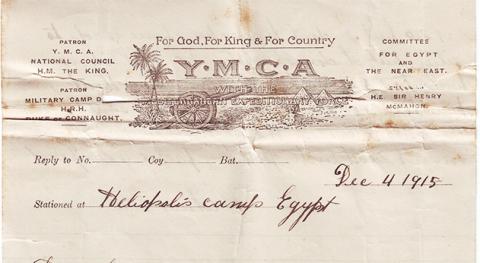 For God, For King & For Country
Y·M·C·A
WITH THE
EXPEDITIONARY FORCE
PATRON
Y. M. C. A.
NATIONAL COUNCIL
H.M. THE KING.
PATRON
MILITARY CAMP D
H.R.H.
DUKE OF CONNAUGHT.
COMMITTEE
FOR EGYPT
AND
THE NEAR EAST.
H.E. SIR HENRY
McMAHON.
Reply to No. Coy Bat.
Dec 4 1915
Stationed at Heliopolis camp Egypt